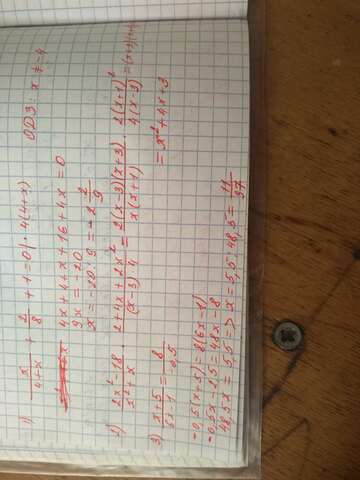 1) x/(4+x) + 2/8 + 1 = 0 | · 4(4+x) ОДЗ: x ≠ -4
4x + 4 + x + 16 + 4x = 0
9x = -20
x = -20 : 9 = -2 2/9
2) (2x² - 18)/(x² + x) · (2 + 4x + 2x²)/((x-3) · 4) = (2(x-3)(x+3))/(x(x+1)) · (2(x+1)²)/(4(x-3)) =
= x² + 4x + 3
3) (x+5)/(6x-1) = 8/(-0,5)
-0,5(x+5) = 8(6x-1)
-0,5x - 2,5 = 48x - 8
48,5x = 5,5 -> x = 5,5 : 48,5 = 11/97